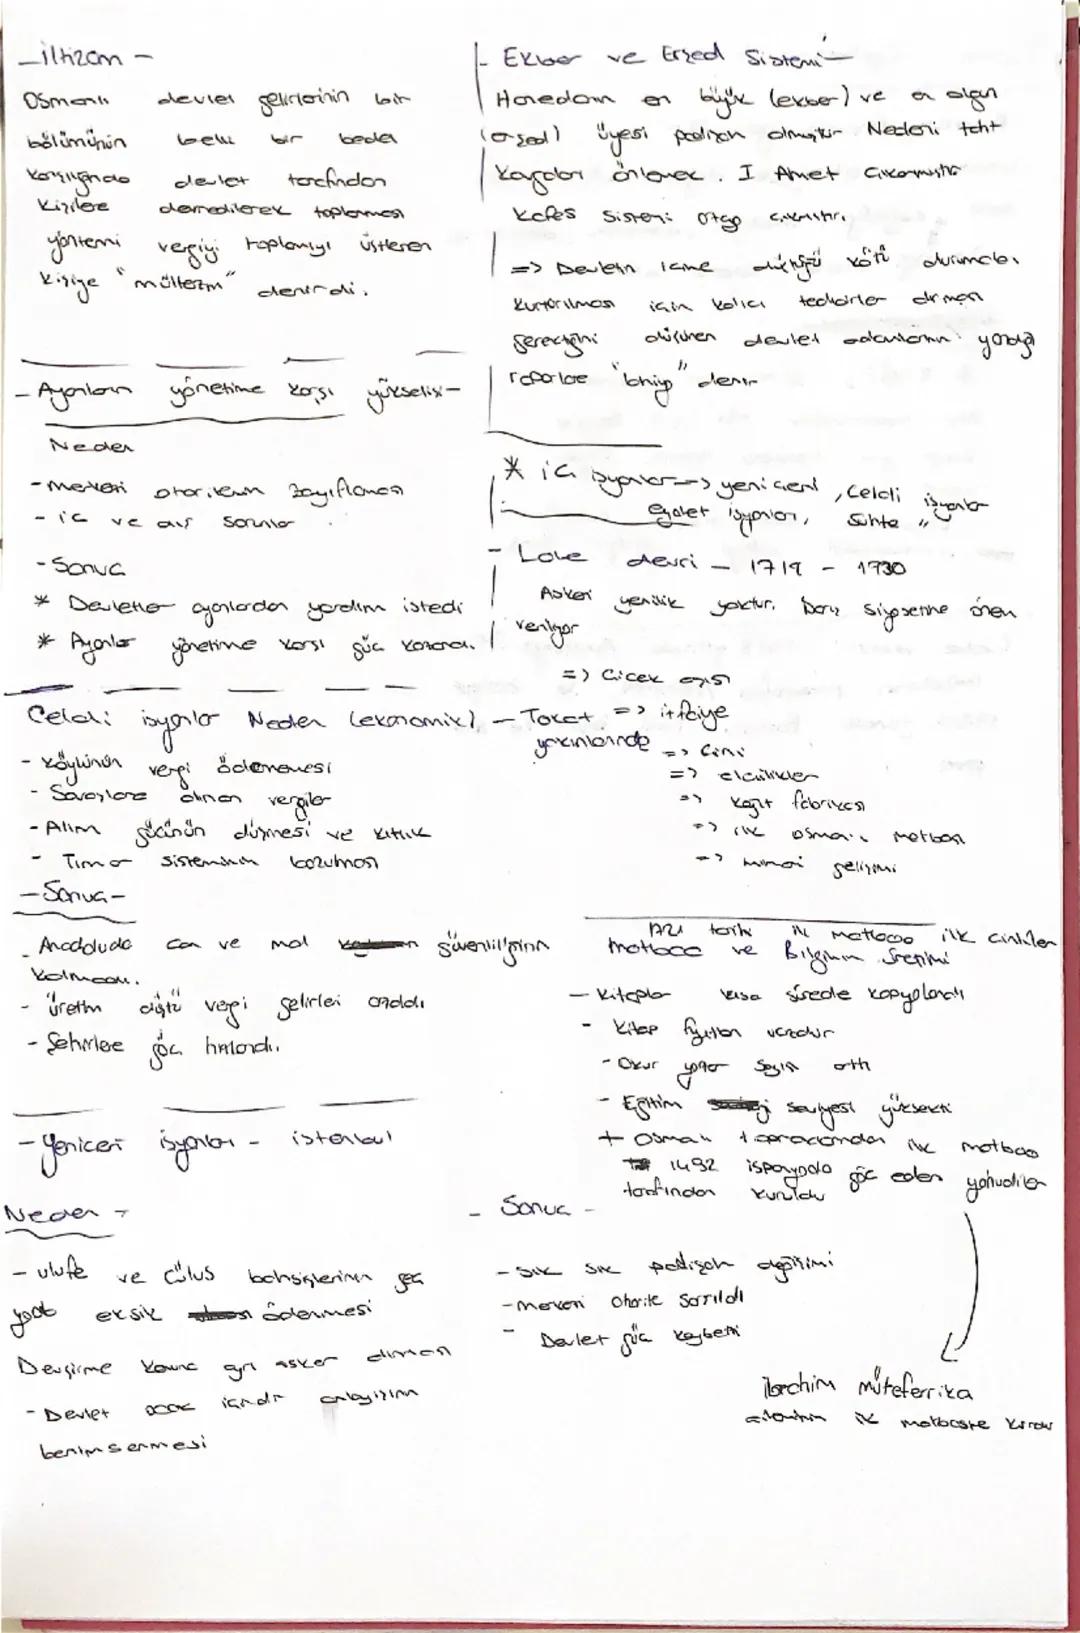 - iltizam -
Osmanlı devlet gelirlerinin bir
bölümünün belli bir bedel
karşılığında devlet tarafından
kişilere devredilerek toplanması
yöntemi vergiyi toplamayı üstlenen
kişiye "mültezim" denirdi.
- Ayanların yönetime karşı yükselişi -
Neden
- merkezi otoritenin zayıflaması
- iç ve dış sorunlar
- Sonuç
* Devletler ayanlardan yardım istedi
* Ayanlar yönetime karşı güç kazandı.
Celali isyanlar Neden (ekonomik)
- köylünün vergi ödememesi
- Savaşlara alınan vergiler
- Alım gücünün düşmesi ve kıtlık
- Tımar sisteminin bozulması
- Sonuç -
- Anadoluda can ve mal güvenliliğinin
kalmaması.
- üretim düştü vergi gelirleri azaldı
- Şehirlere göç hızlandı.
- Yeniceri isyanları - istanbul
Neden -
- ulufe ve Cülus bahşişlerinin geç
yada eksik ödenmesi
Devşirme kanuna ayrı asker alınması
- Devlet ocak içindir anlayışının
benimsenmesi
- Ekber ve Erşed Sistemi -
Hanedanın en büyük (ekber) ve en olgun
(erşed) üyesi padişah olmuştur Nedeni taht
kavgaları önlemek. I Ahmet çıkarmıştır
kafes sistemi ortaya çıkmıştır.
=> Devletin içine düştüğü kötü durumdan
kurtarılması için kalıcı tedbirler alınması
gerektiğini düşünen devlet adamlarının yazdığı
raporlara "lahiya" denir
* iç isyanlar -> yeniceri, Celali isyanlar
eyalet isyanları, Suhte "
- Lale devri - 1718 - 1730
Askeri yenilik yoktur. barış siyasetine önem
veriliyor
=> Çiçek aşısı
- Tokat => itfaiye
yakınlarında => Çini
=> elçilikler
=> kağıt fabrikası
=> ilk osmanlı matbaası
=> mimari gelişimi
1721 tarihi ilk matbaa ilk Çinliler
matbaa ve Bilginin Üretimi
- Kitaplar kısa sürede kopyalandı
- Kitap fiyatları ucuzdur
- Okur yazar sayısı arttı
- Eğitim seviyesi yükseldi
+ Osmanlı topraklarından ilk matbaa
1492 ispanyada göç eden yahudiler
tarafından kuruldu
- Sonuç -
- sık sık padişah değişimi
- merkezi otorite sarsıldı
- Devlet güç kaybetti
ibrahim müteferrika
ilk matbaayı kurdu